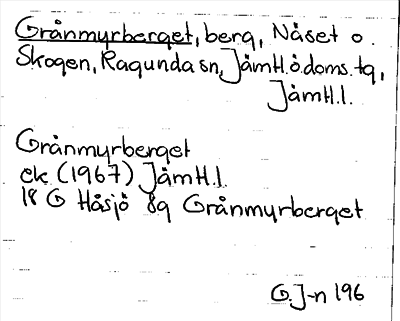 Grånmyrberget, berg, Näset o.
Skogen, Ragunda sn, Jämtl.ö.doms.tg,
Jämtl.l.
Grånmyrberget
ek (1967) Jämtl.l.
18 G Håsjö 8g Grånmyrberget
G.J-n 196